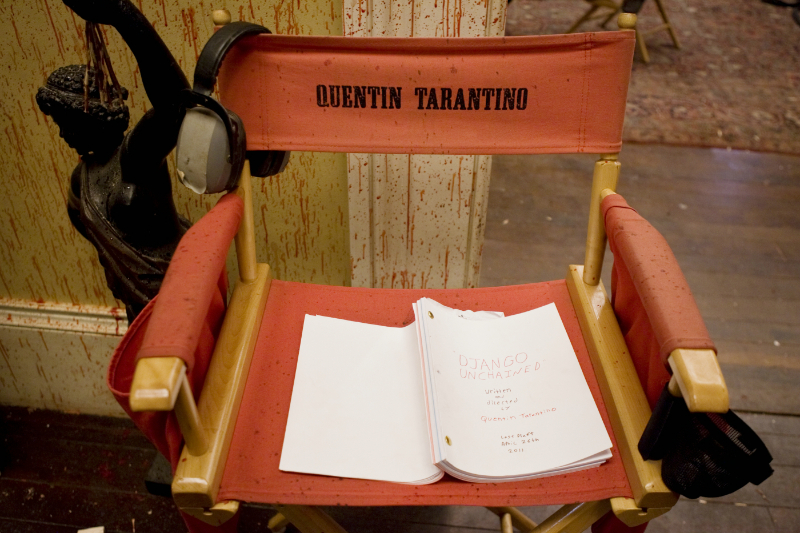 QUENTIN TARANTINO
DJANGO
UNCHAINED
Written
and
directed
by
Quentin Tarantino
Last Draft
April 26th
2011